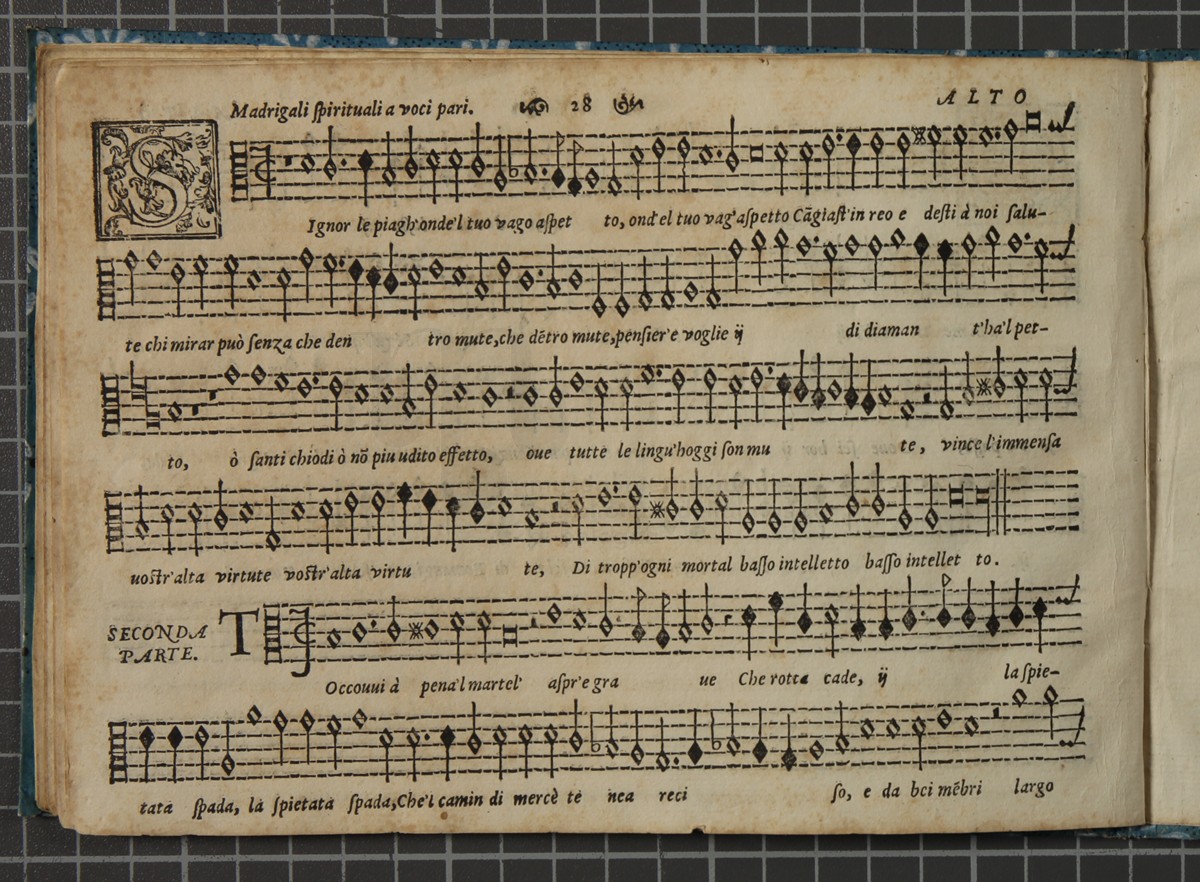 Madrigali ſpirituali a voci pari. 28 ALTO
SIgnor le piagh'onde'l tuo vago aſpet to, ond'el tuo vag'aſpetto Cāgiaſt'in reo e deſti à noi ſalu-
te chi mirar può ſenza che den tro mute, che dētro mute, penſier'e voglie ij di diaman t'ha'l pet-
to, ò ſanti chiodi ò nō piu udito effetto, oue tutte le lingu'hoggi ſon mu te, vince l'immenſa
uoſtr'alta virtute voſtr'alta virtu te, Di tropp'ogni mortal baſſo intelletto baſſo intellet to.
SECONDA
PARTE.
TOccouui à pena'l martel' aſpr'e gra ue Che rotta cade, ij la ſpie-
tata ſpada, la ſpietata ſpada, Che'l camin di mercè te nea reci ſo, e da bei mēbri largo